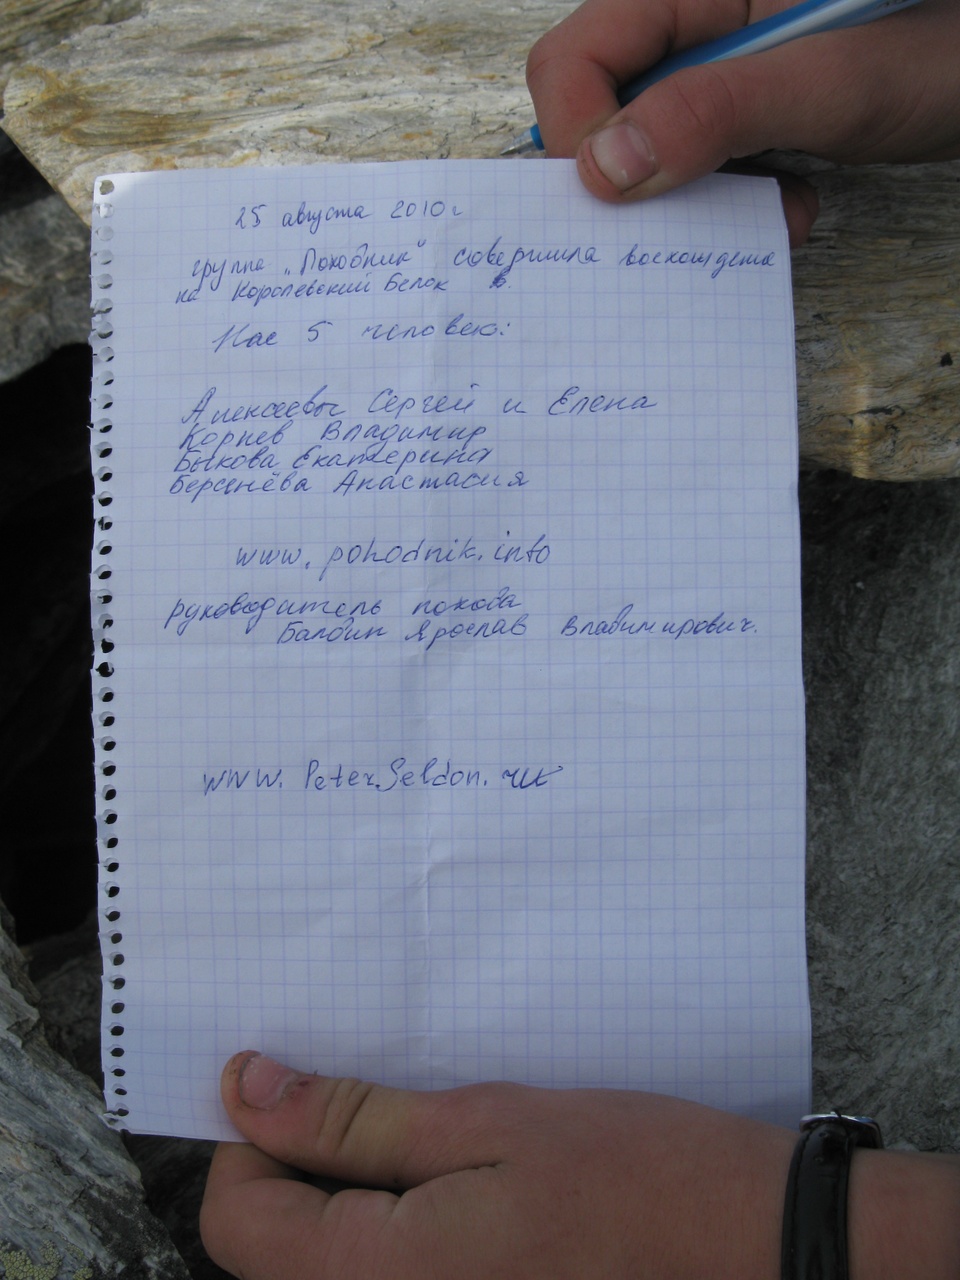 25 августа 2010г
группа „Походник" совершила восхождение
на Королевский Белок
Нас 5 человек:
Алексеевы Сергей и Елена
Корнев Владимир
Быкова Екатерина
Берсенёва Анастасия
www.pohodnik.info
руководитель похода
Балдин Ярослав Владимирович.
www.PeterSeldon.ru